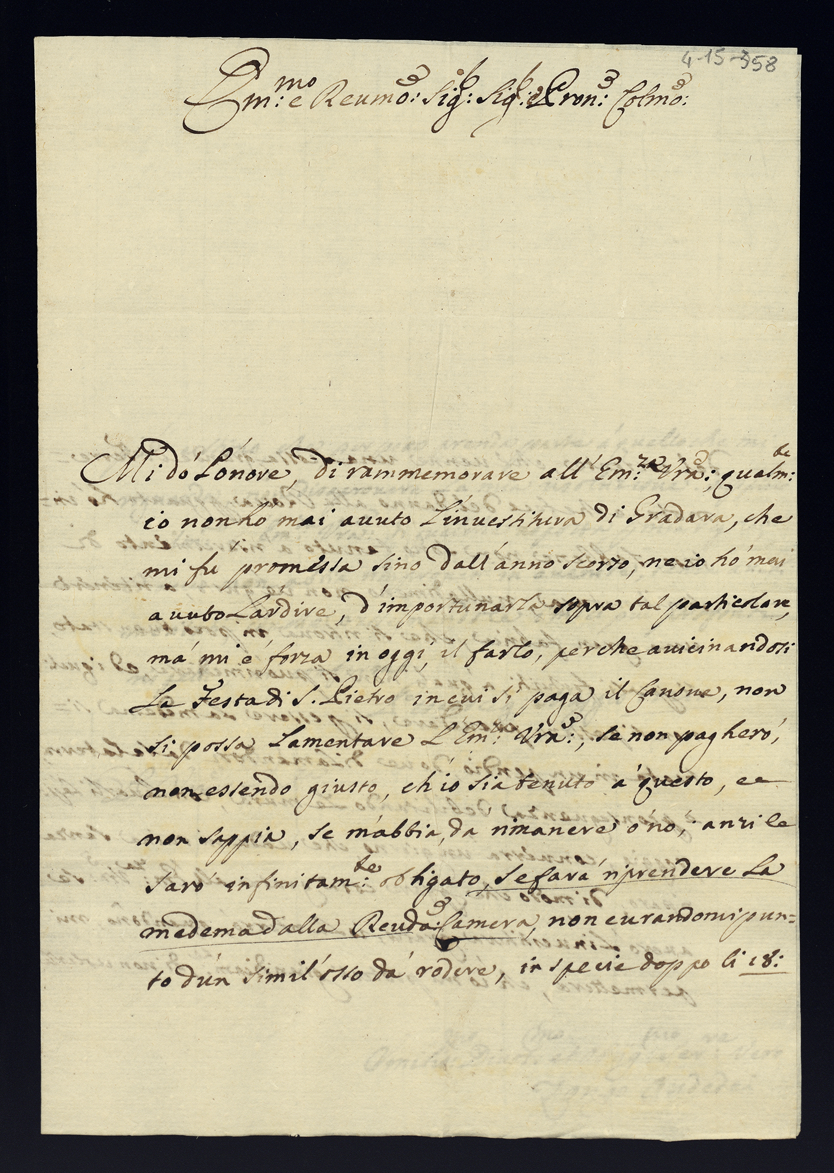 4-15-358
Em:mo e Reumo: Sig: Sig: Pron: Colmo:
Mi dó L'onore, di rammemorare all' Em:za Vra:, qualm:te
io non ho mai avuto L'investitura di Gradara, che
mi fu promessa sino dall'anno scorso, ne io hó mai
avuto L'ardire, d'importunarla sopra tal particolare,
má mi é forza in oggi, il farlo, perche avicinandosi
La Festa di S. Pietro in cui si paga il Canone, non
si possa Lamentare L'Em: Vra:, se non pagheró,
non essendo giusto, ch'io sia tenuto á questo, e
non sappia, se m'abbia, da rimanere ó no, anzi le
saró infinitam:te obligato, se fará riprendere La
medema dalla Reuda: Camera, non curandomi pun=
to d'un simil'osso dá rodere, in specie doppo li 18: